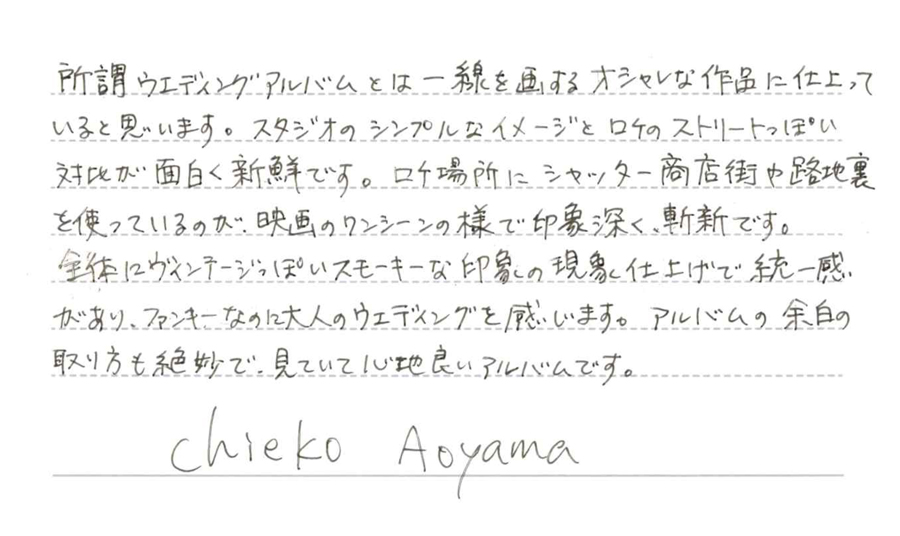 所謂ウエディングアルバムとは一線を画するオシャレな作品に仕上って
いると思います。スタジオのシンプルなイメージとロケのストリートっぽい
対比が面白く新鮮です。ロケ場所にシャッター商店街や路地裏
を使っているのが、映画のワンシーンの様で印象深く、斬新です。
全体にヴィンテージっぽいスモーキーな印象の現象仕上げで統一感
があり、ファンキーなのに大人のウエディングを感じます。アルバムの余白の
取り方も絶妙で、見ていて心地良いアルバムです。
Chieko Aoyama